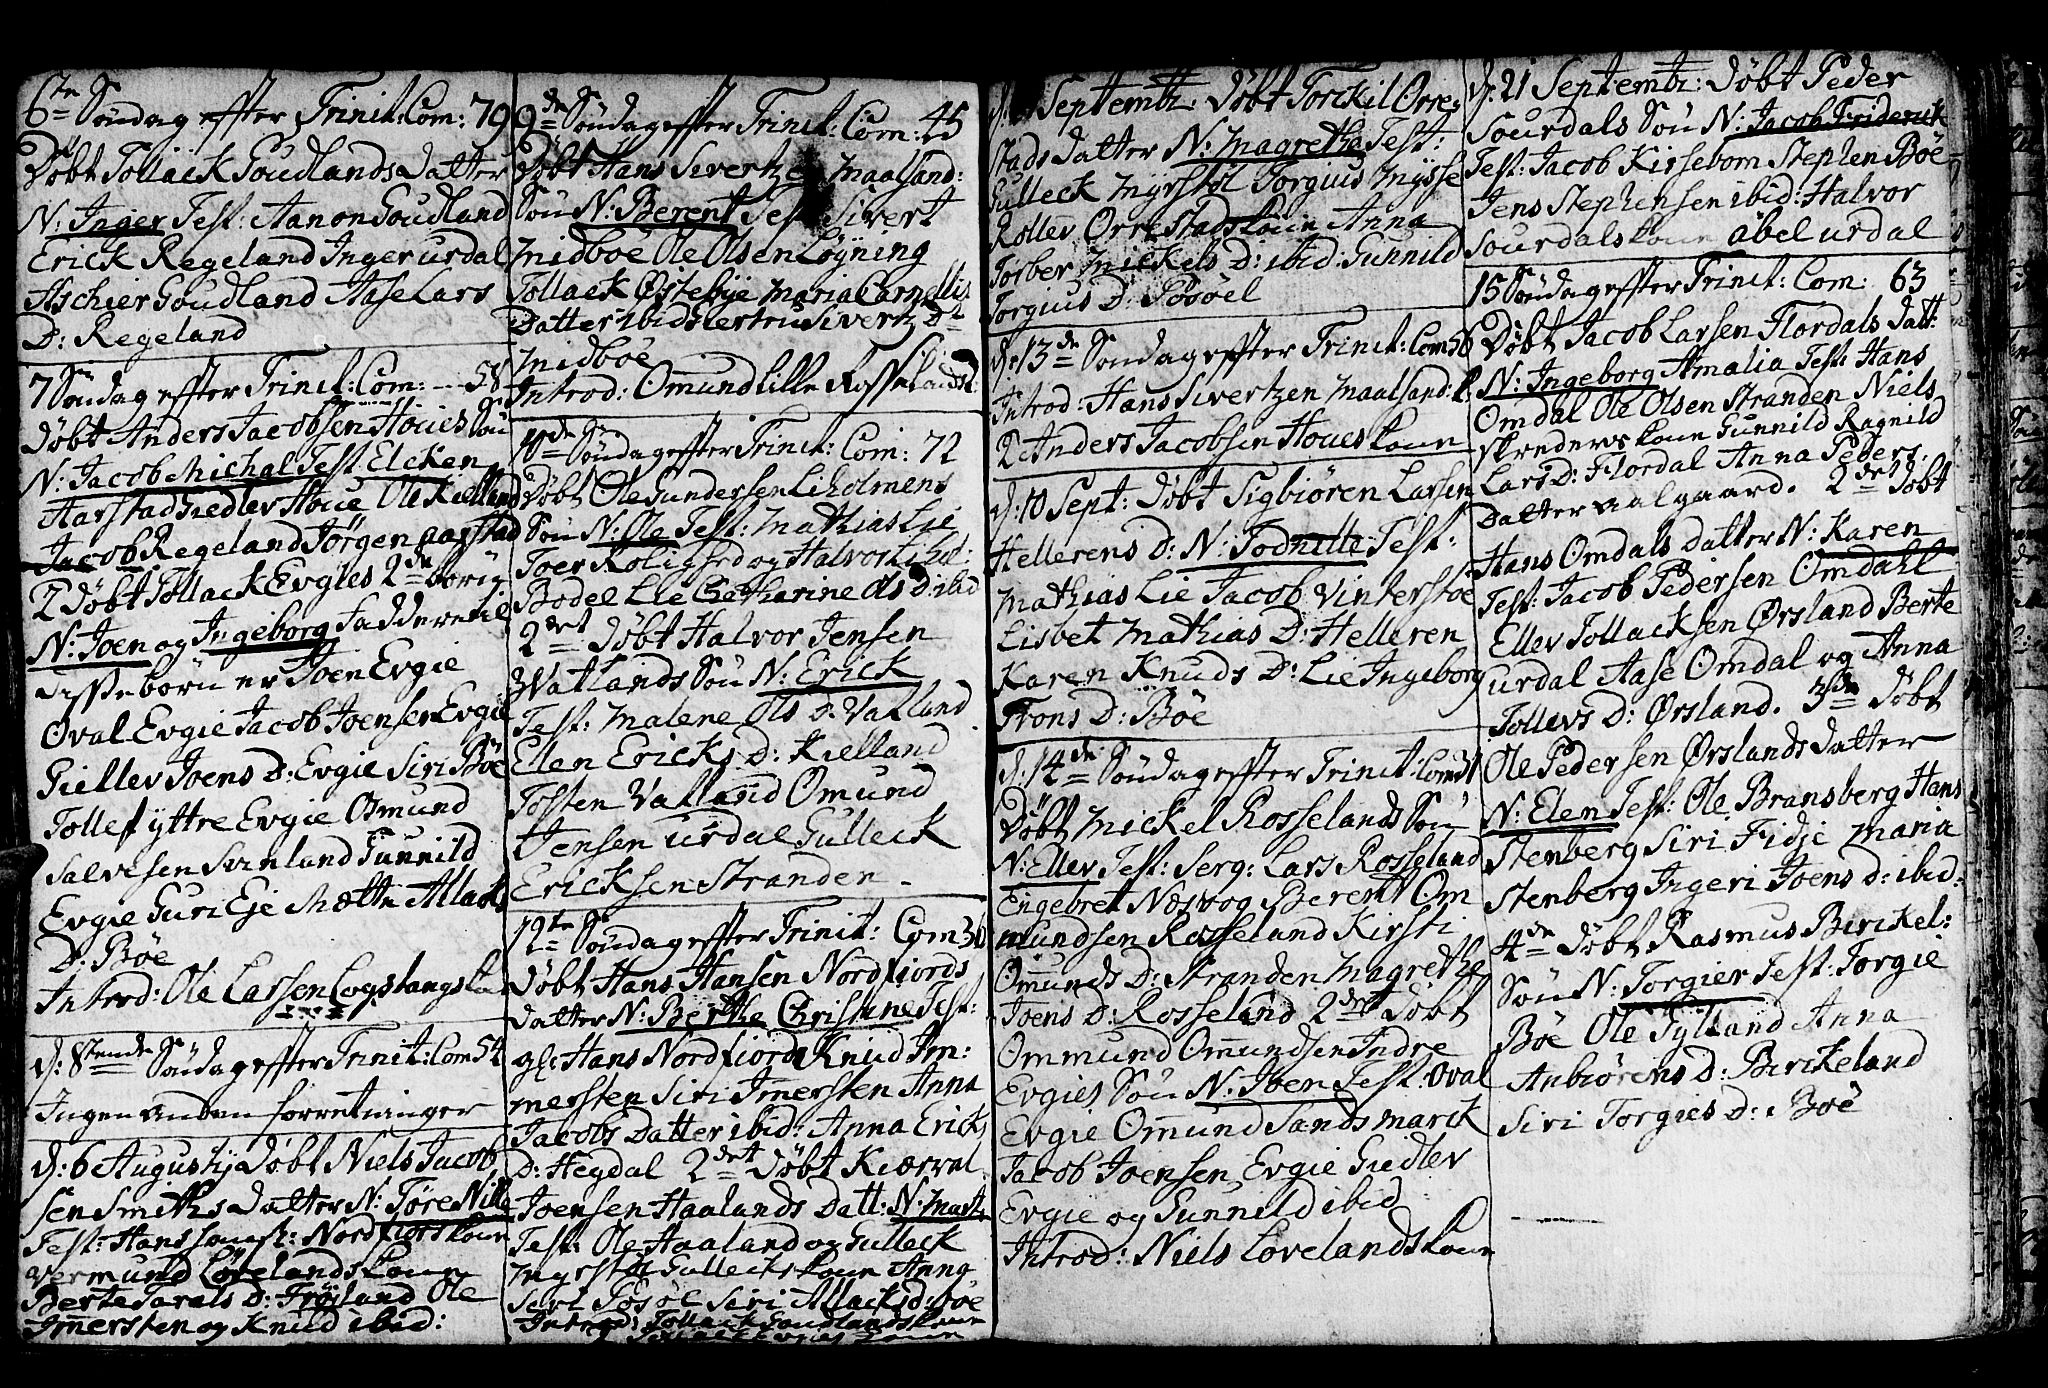 6te Søndag effter Trinit: Com: 79
Døbt Tollack Goudlands datter
N: Inger Test: Aanon Goudland
Erick Regeland Inger urdal
Aschier Goudland Aase Lars
D: Regeland
7 Søndag effter Trinit: Com: --- 58
døbt Anders Jacobsen Houes Søn
N: Jacob Michal Test: Elcken
Aarstad Giedlev Houe Ole Kielland
Jacob Regeland Jørgen aarstad
2 Døbt Tollack Evgies 2de børn
N: Joen og Ingeborg fadderne til
disse børn er Joen Evgie
Oval Evgie Jacob Joensen Evgie
Giellev Joens D: Evgie Siri Bøe
Tollef yttre Evgie Osmund
Salvesen Svinland Gunnild
Evgie Guri Eje Mætte Allacks
D: Bøe
Introd: Ole Larsen
d: 8tende Søndag effter Trinit: Com 54
Ingen anden forretninger
d: 6 Augustij Døbt Niels Jacob
sen Smiths datter N: Tøre Nille
Test: Hans Nordfiors kone
Vermund Lovelands kone
Berte Tarals D: Frøiland Ole
Immersten og Knud ibid:
9de Søndag effter Trinit: Com: 45
Døbt Hans Sivertzen Maalsand:
Søn N: Berent Test: Sivert
Midboe Ole Olsen Løyning
Tollack Østebye Maria Cornelli
Datter ibid Giertru Sivertz Dr
Midbøe
Introd: Omund Lille Rosselands
10de Søndag effter Trinit: Com: 72
Døbt Ole Gundersen Liholmens
Søn N: Ole Test: Mathias Lie
Joer Kolighed og Halvor Lihol:
Bodel Lie Catharine Ols D: ibid
2det Døbt Halvor Jensen
Watlands Søn N: Erick
Test: Malene Ols D: Vatland
Elen Ericks D: Kielland
Tosten Vatland Omund
Jensen urdal Gulleck
Ericksen Stranden -
12te Søndag effter Trinit: Com 36
Døbt Hans Hansen Nordfiords
datter N: Berthe Christine Test:
gl: Hans Nordfiord Knud Im:
mersten Siri Immersten Anna
Jacobs Datter ibid: Anna Ericks
D: Hegdal 2det døbt Kiærval
Joensen Haalands Datt: N: Marte
Test: Ole Haaland og Gulleck
Myrstøl Gullecks kone Anna
Seri Posøl Siri Allacks d: bøe
Introd: Tollack Goudlands kone
Tollack Evgies kone
Septembr: Døbt Torckil Orre
stads datter N: Magrethe Test:
Gulleck Myrstøl Torguus Mysse
Rollev Orrestads kone Anna
Torber Mickels D: ibid: Gunnild
Torguus D: Posøel
d: 13de Søndag effter Trinit: Com 36
Introd: Hans Sivertzen Maalsand: k
2 Anders Jacobsen Houes kone
d: 10 Sept: Døbt Sigbiøren Larsen
Hellerens D: N: Todnille Test:
Mathias Lie Jacob Vinterstøe
Lisbet Mathias D: Helleren
Karen Knuds D: Lie Ingeborg
Trons D: Bøe
d: 14de Søndag effter Trinit: Com 31
Døbt Mickel Rosselands Søn
N: Ellev Test: Serg: Lars Rosseland
Engebret Næsvog Berent Om
mundsen Rosseland Kirsti
Omunds D: Stranden Magrethe
Joens D: Rosseland 2det Døbt
Ommund Omundsen Indre
Evgies Søn N: Joen Test: Oval
Evgie Omund Sandsmarck
Jacob Joensen Evgie Giedlev
Evgie og Gunnild ibid
Introd: Niels Lovelands kone
d: 21 Septembr: Døbt Peder
Sourdals Søn N: Jacob Friderick
Test: Jacob Kirsebom Stephen Bøe
Jens Stephensen ibid: Halvor
Sourdals kone Abel urdal
15 Søndag effter Trinit: Com: 63
Døbt Jacob Larsen Flordals Datt:
N: Ingeborg Amalia Test: Hans
Omdal Ole Olsen Stranden Niels
skreders kone Gunnild Ragnild
Lars D: Flordal Anna Peders
Datter aalgaard. 2det Døbt
Hans Omdals datter N: Karen
Test: Jacob Pedersen Omdahl
Ellev Tollacksen Ørsland Berte
urdal Aase Omdal og Anna
Tollevs D: Ørsland. 3de døbt
Ole Pedersen Ørslands datter
N: Elen Test: Ole Bransberg Hans
Stenberg Siri Fidje Maria
Stenberg Ingeri Joens D: ibid:
4de Døbt Rasmus Birckel:
Søn N: Torgier Test: Torgie
Bøe Ole Tylland Anna
Anbiørens D: Birckeland
Siri Torgies D: Bøe